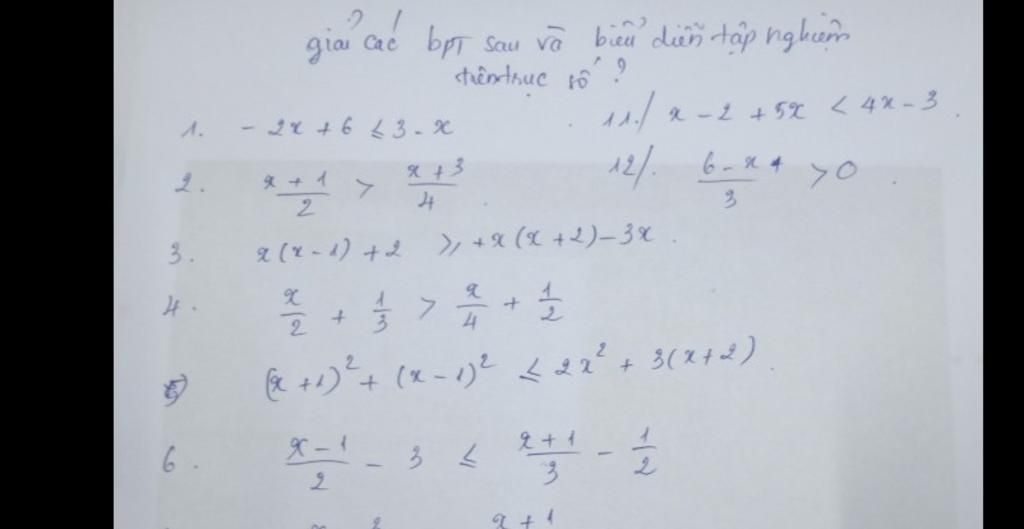 giải các bpT sau và biểu diễn tập nghiệm
trên trục số ?
1. - 2x + 6 ≤ 3 - x
11./ x - 2 + 5x < 4x - 3.
2. (x + 1)/2 > (x + 3)/4.
12/. (6 - x)/3 > 0.
3. x(x - 1) + 2 ≥ + x(x + 2) - 3x.
4. x/2 + 1/3 > x/4 + 1/2
5) (x + 1)² + (x - 1)² ≤ 2x² + 3(x + 2).
6. (x - 1)/2 - 3 ≤ (x + 1)/3 - 1/2
x + 1